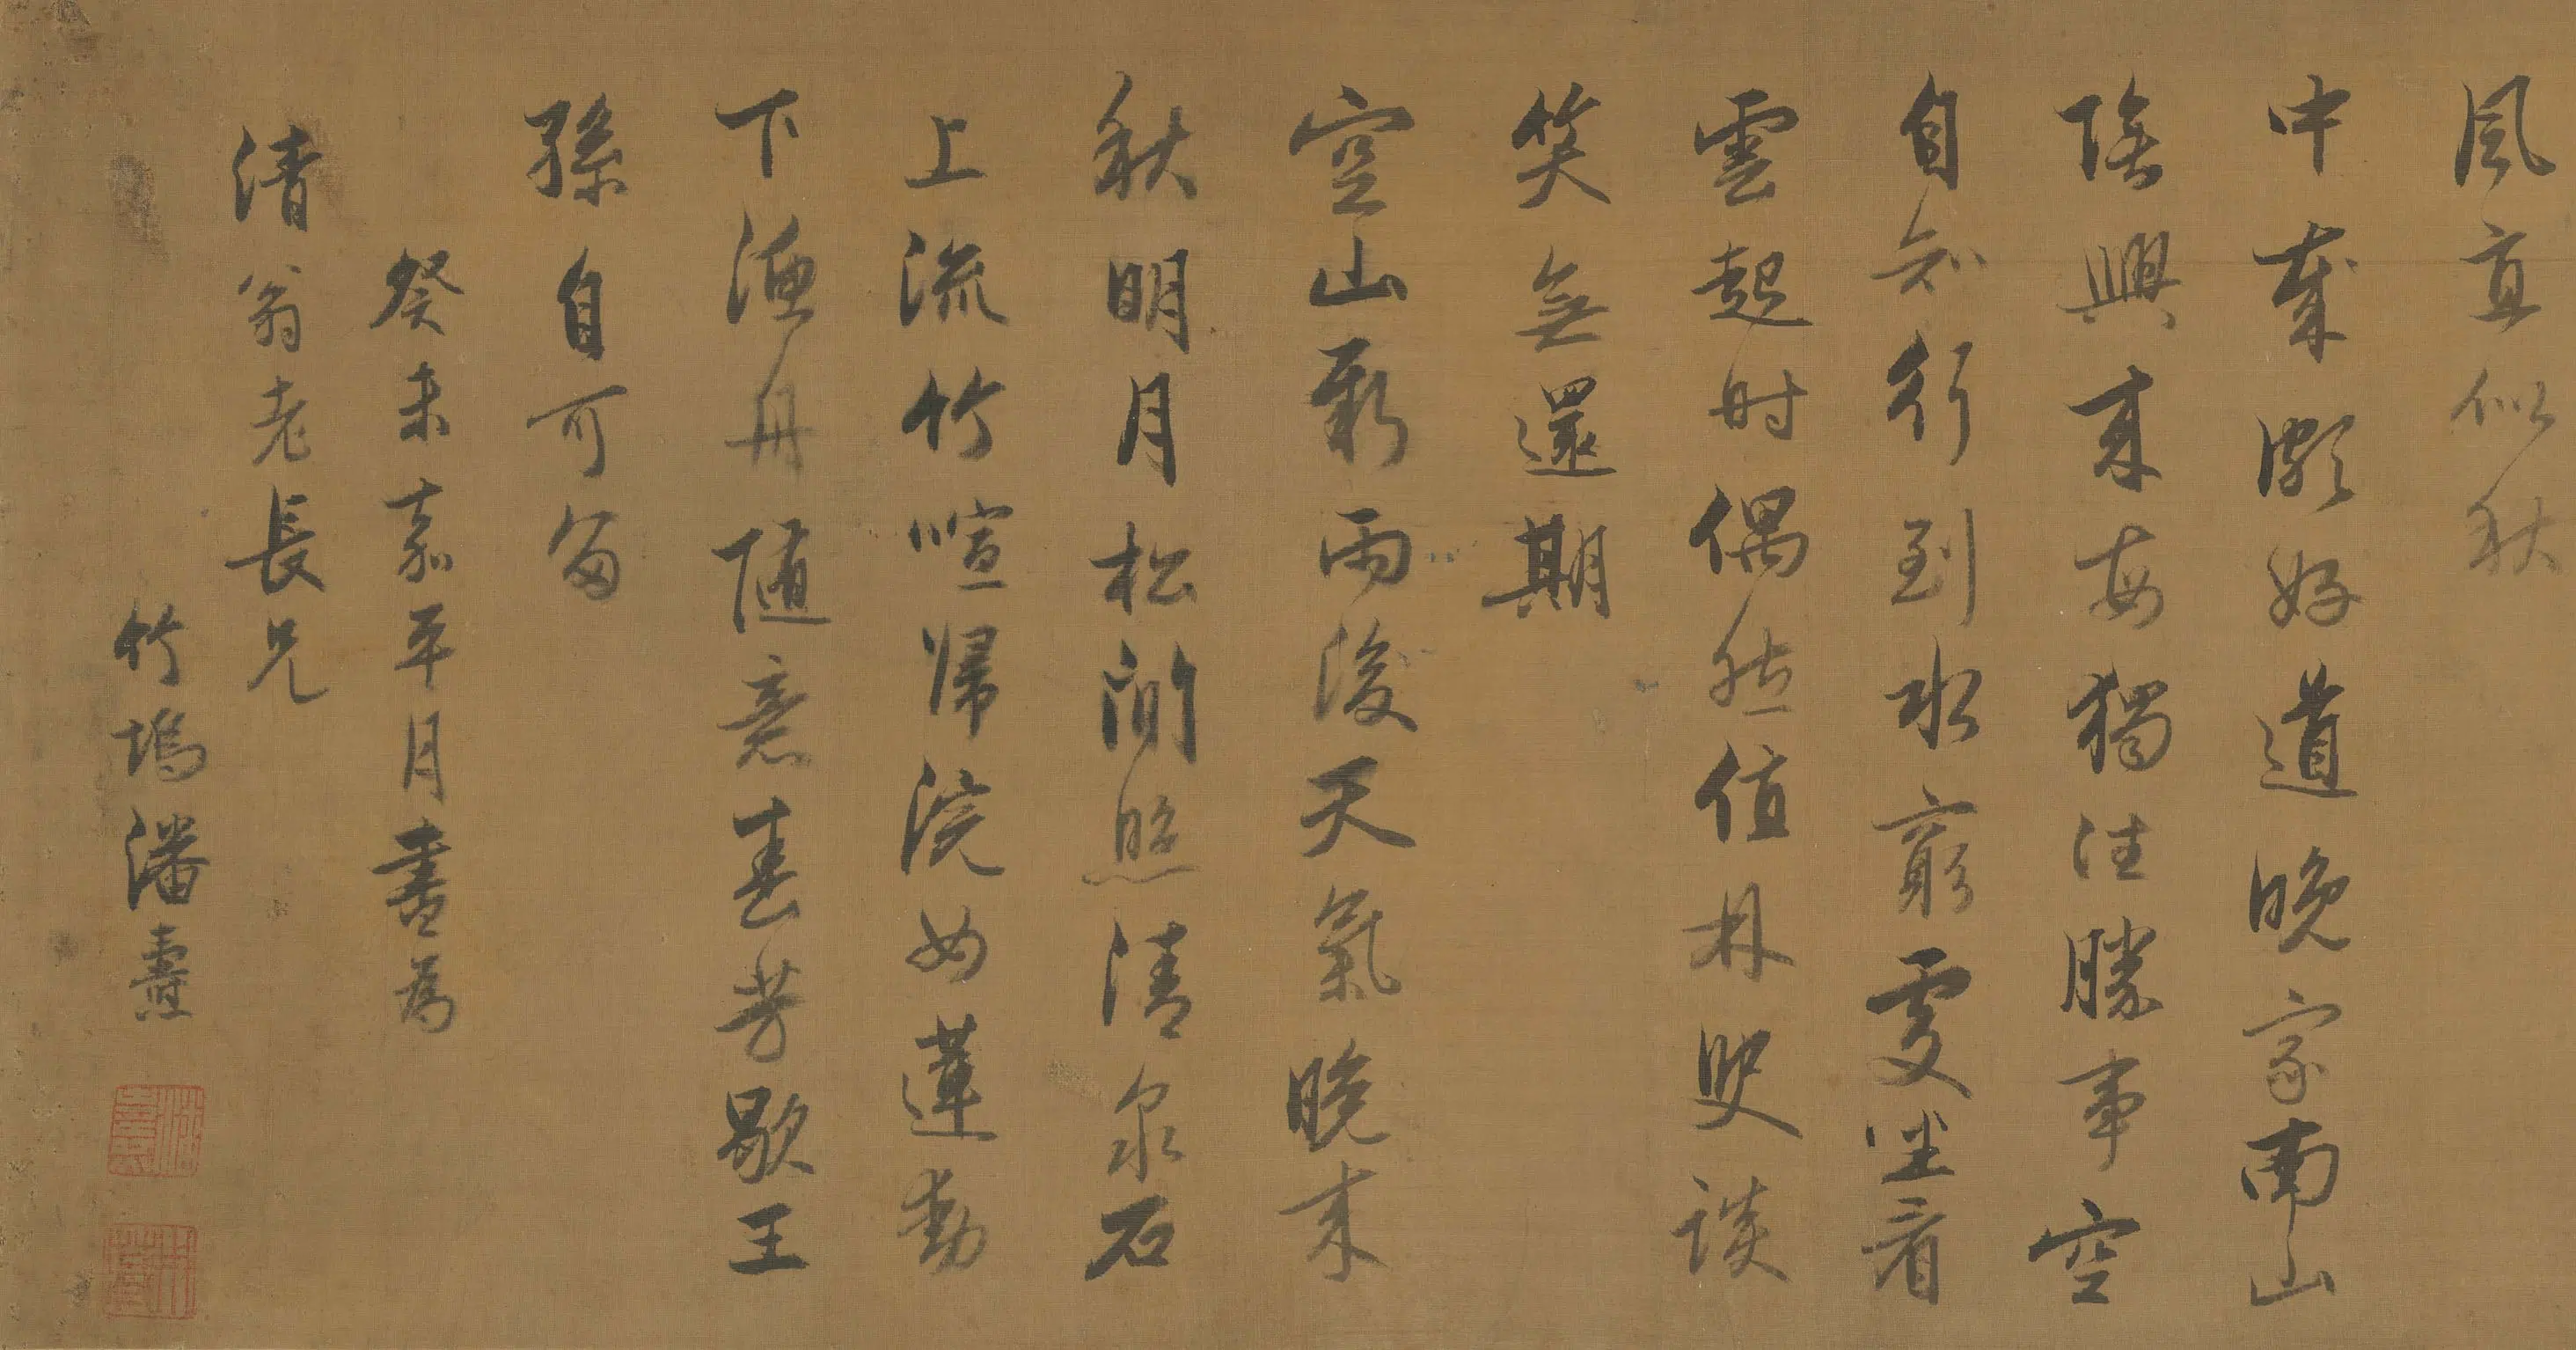 風直似秋
中歲頗好道晚家南山
陲興來每獨往勝事空
自知行到水窮處坐看
雲起时偶然值林叟談
笑無還期
空山新雨後天氣晚來
秋明月松間照清泉石
上流竹喧歸浣女蓮動
下漁舟隨意春芳歇王
孫自可留
癸未嘉平月書為
清翁老長兄
竹塢潘壽